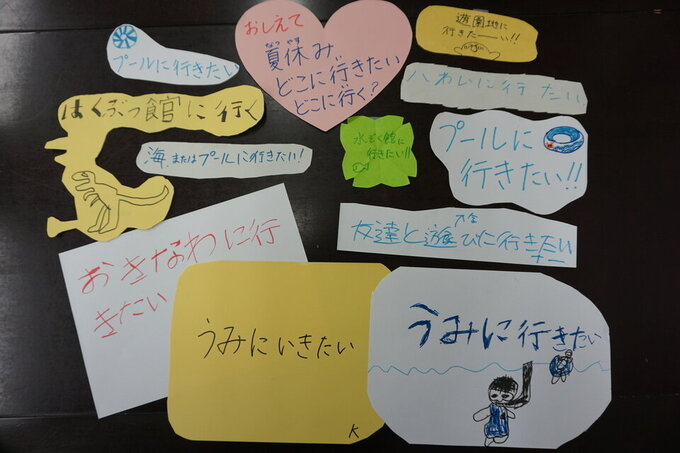 おしえて
夏休み
どこに行きたい
どこに行く?
プールに行きたい
遊園地に
行きたーーい!!
はくぶつ館に行く
ハわいに行 たい
海、またはプールに行きたい!
水ぞく館に
行きたい!!
プールに
行きたい!!
友達と遊びに行きたい
おきなわに行
きたい
うみにいきたい
K
うみに行きたい